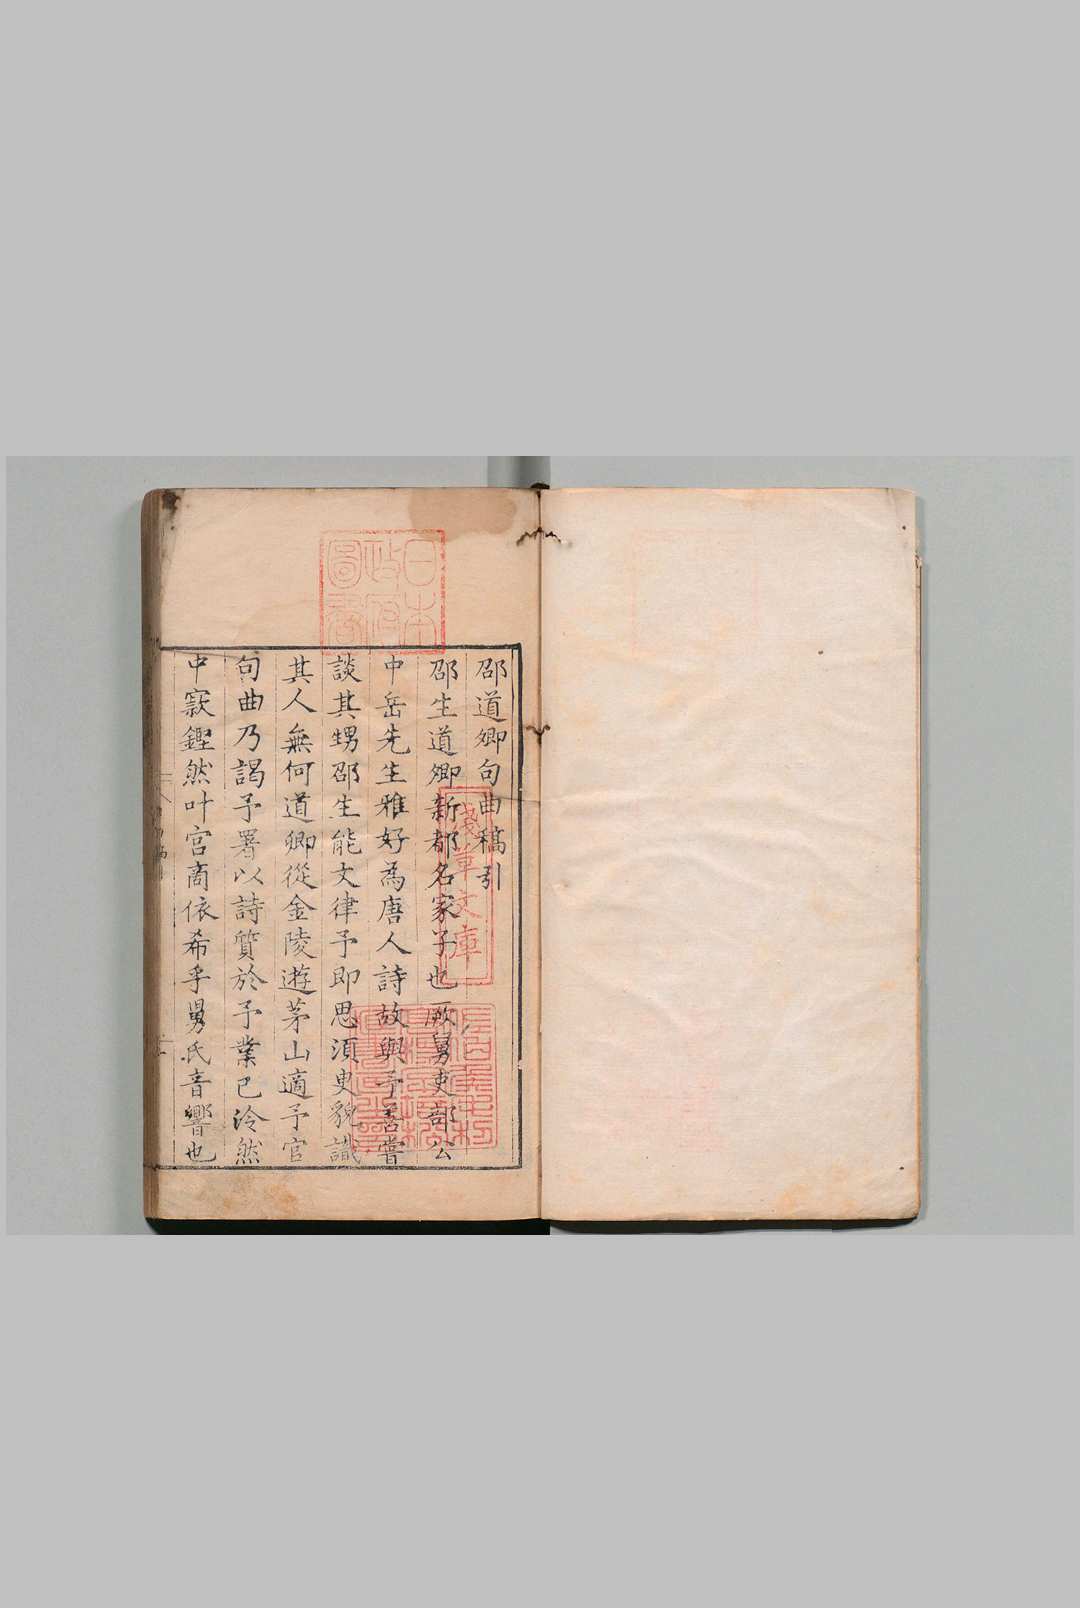 邵道卿句曲稿引
邵生道卿新都名家子也厥舅吏部公
中岳先生雅好為唐人詩故與予善嘗
談其甥邵生能文律予即思須臾貌識
其人無何道卿從金陵遊茅山適予官
句曲乃謁予署以詩質於予業已泠然
中窾鏗然叶宮商依希乎舅氏音響也
日本
政府
圖書
淺草文庫